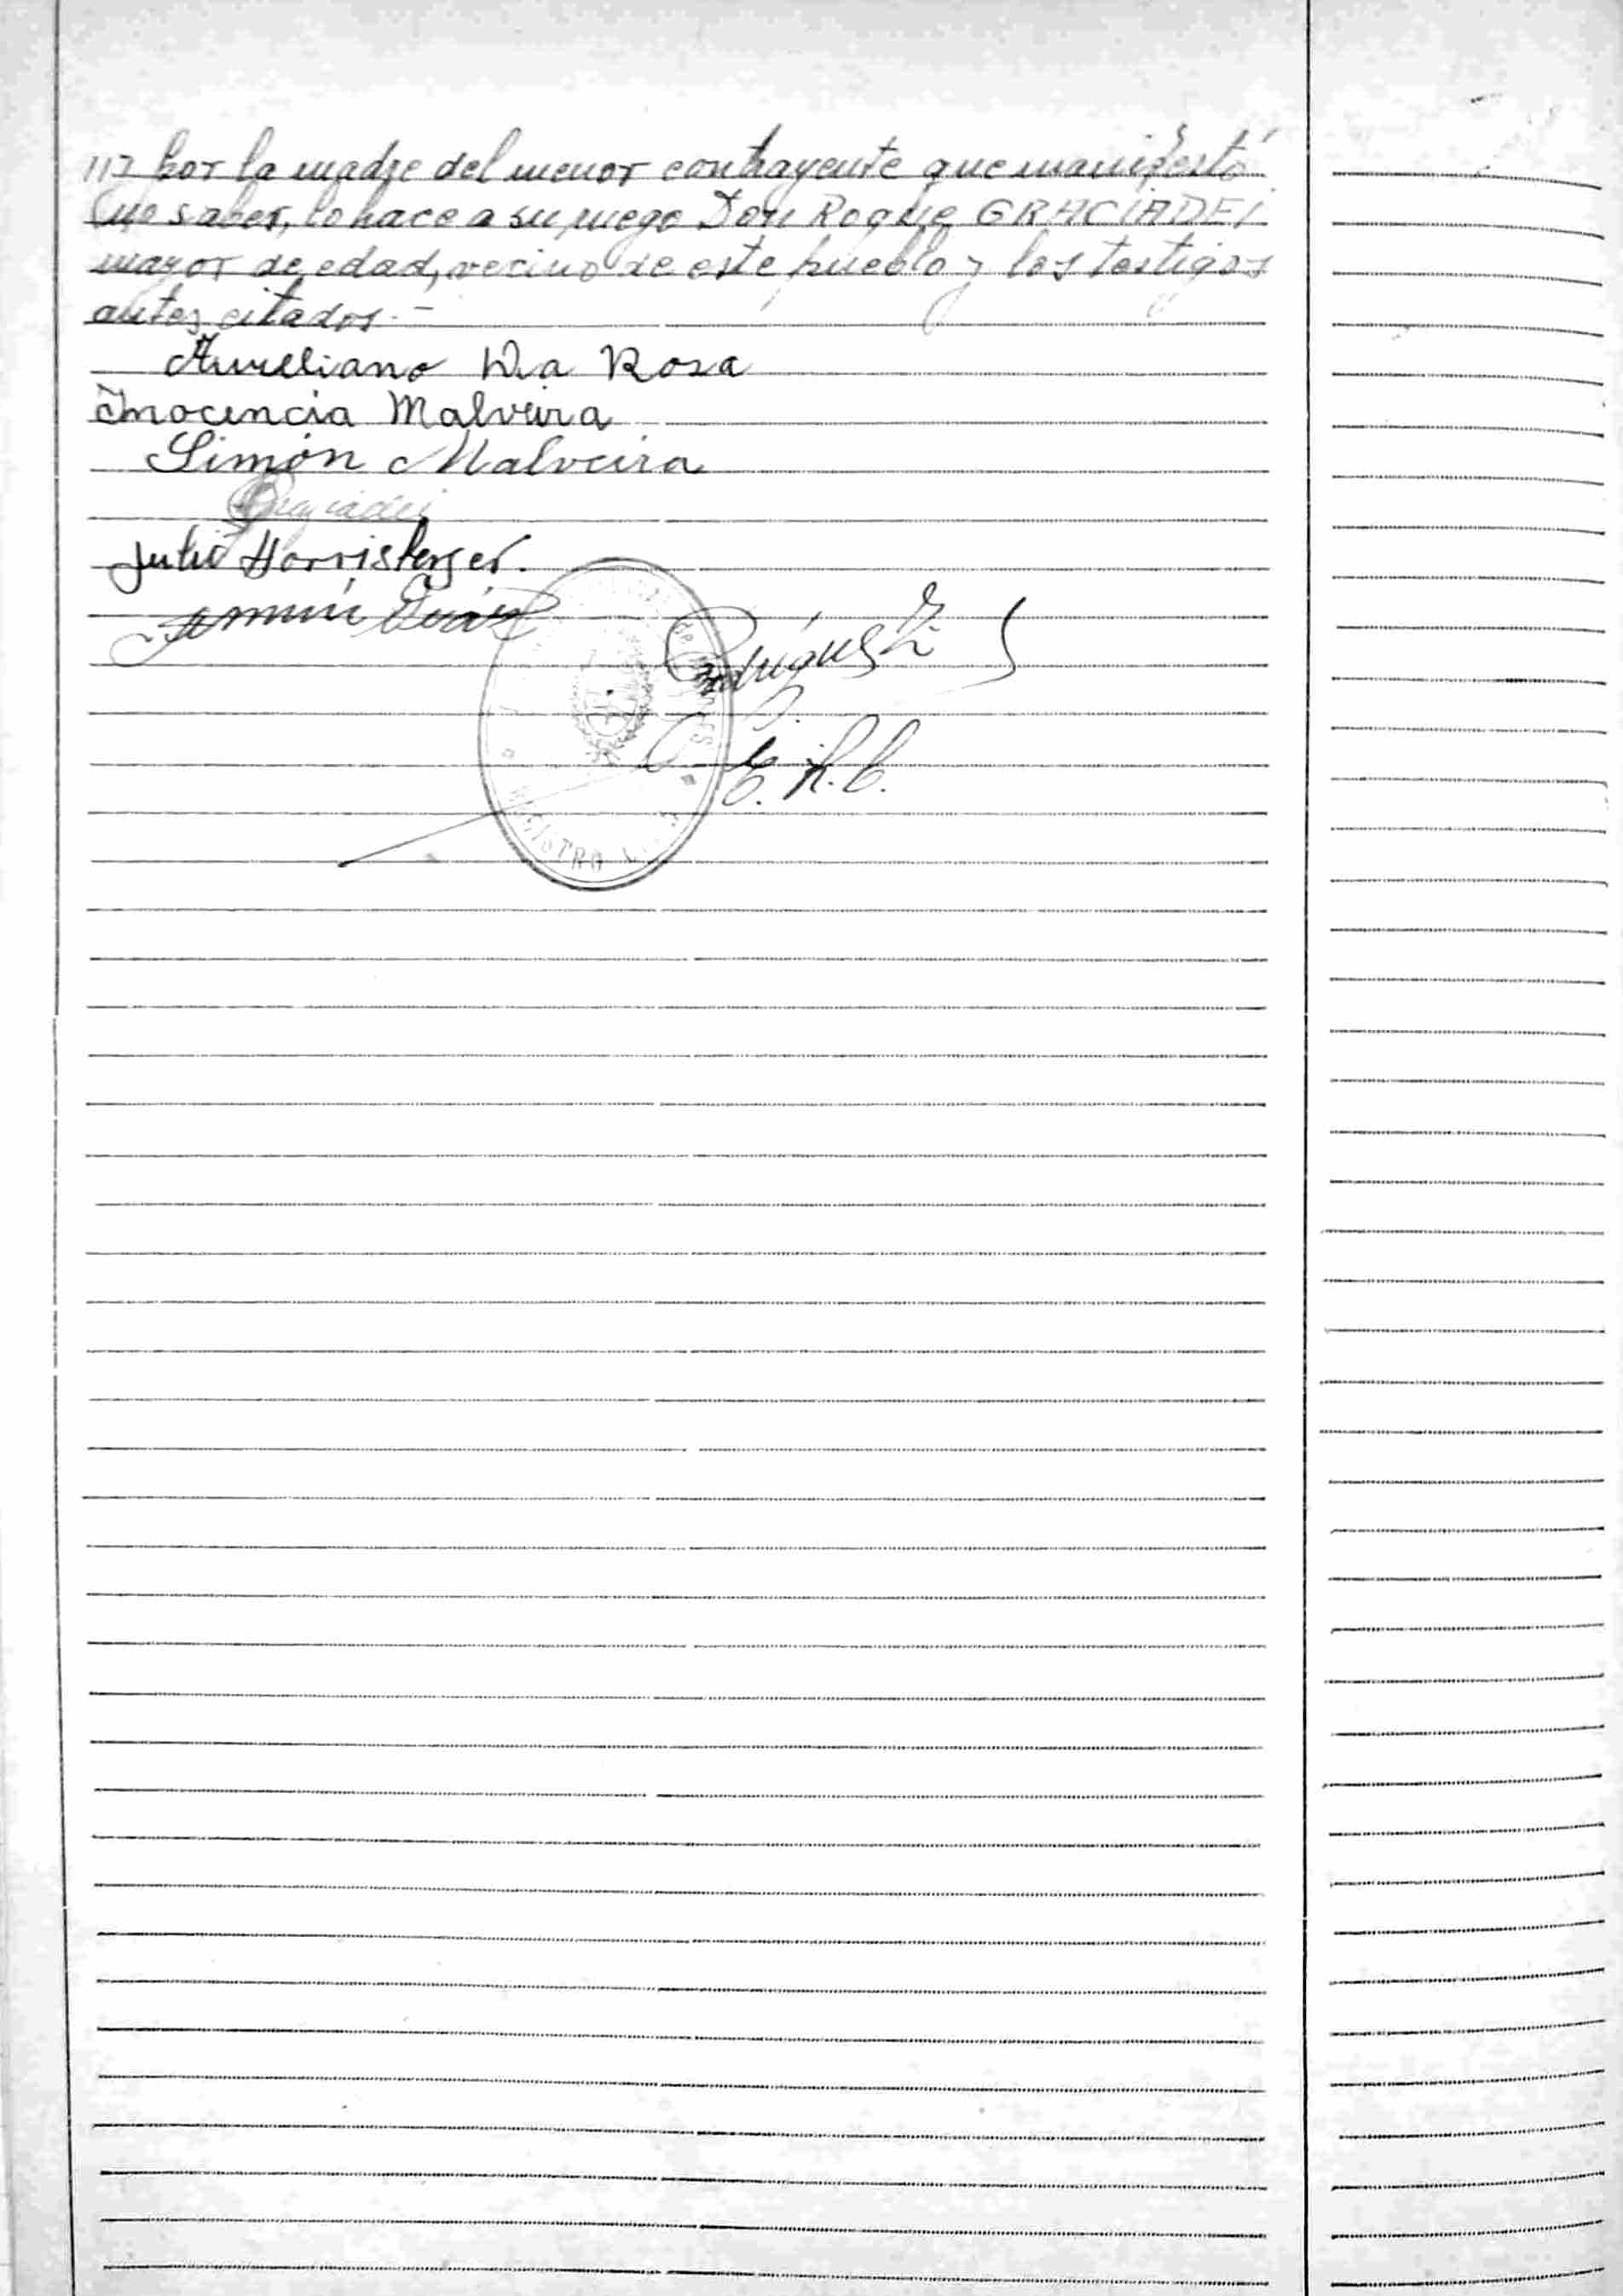 /// por la madre del menor contrayente que manifestó
no saber, lo hace a su ruego Don Roque GRACIADEI
mayor de edad, vecino de este pueblo y los testigos
antes citados.-
Aureliano Da Rosa
Inocencia Malveira
Simón Malveira
Graciadei
Julio Horrisberger.
Rodríguez
E. R. C.
REGISTRO